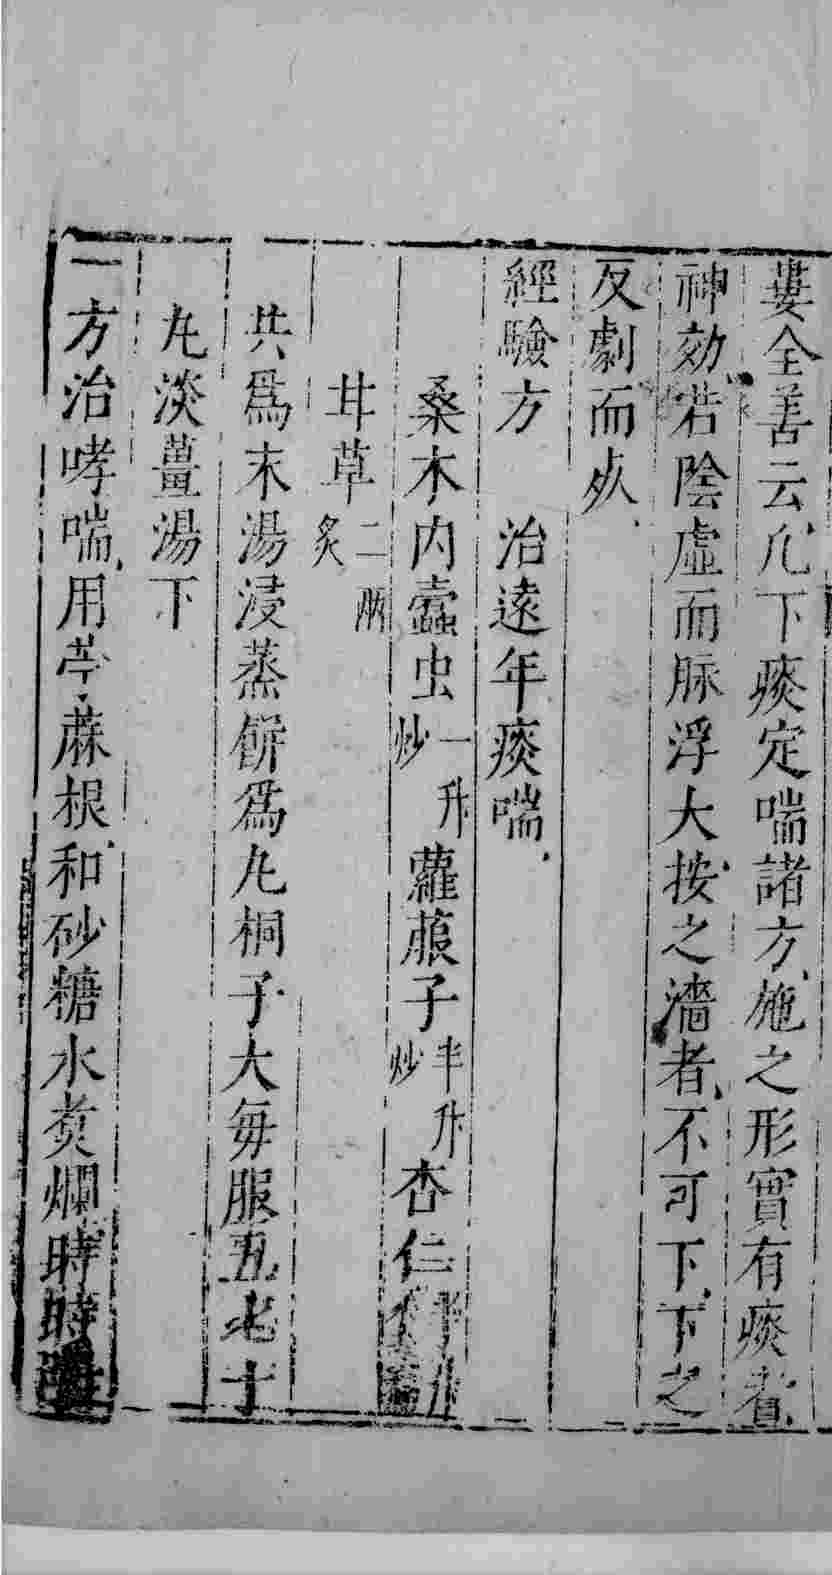 婁全善云凢下痰定喘諸方施之形實有痰者
神効若陰虛而脉浮大按之濇者不可下下之
反劇而死
經驗方　治遠年痰喘
桑木内蠧虫一升炒蘿蔔子半升炒杏仁半升
甘草二兩炙
共爲末湯浸蒸餠爲丸桐子大每服五七十
丸淡薑湯下
一方治哮喘用苧蔴根和砂糖水煑爛時時